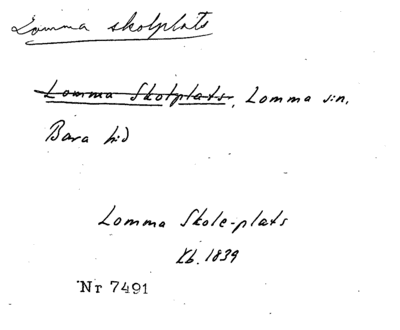 Lomma skolplats
Lomma Skolplats, Lomma sn,
Bara hd
Lomma Skole-plats
Kb. 1839
Nr 7491